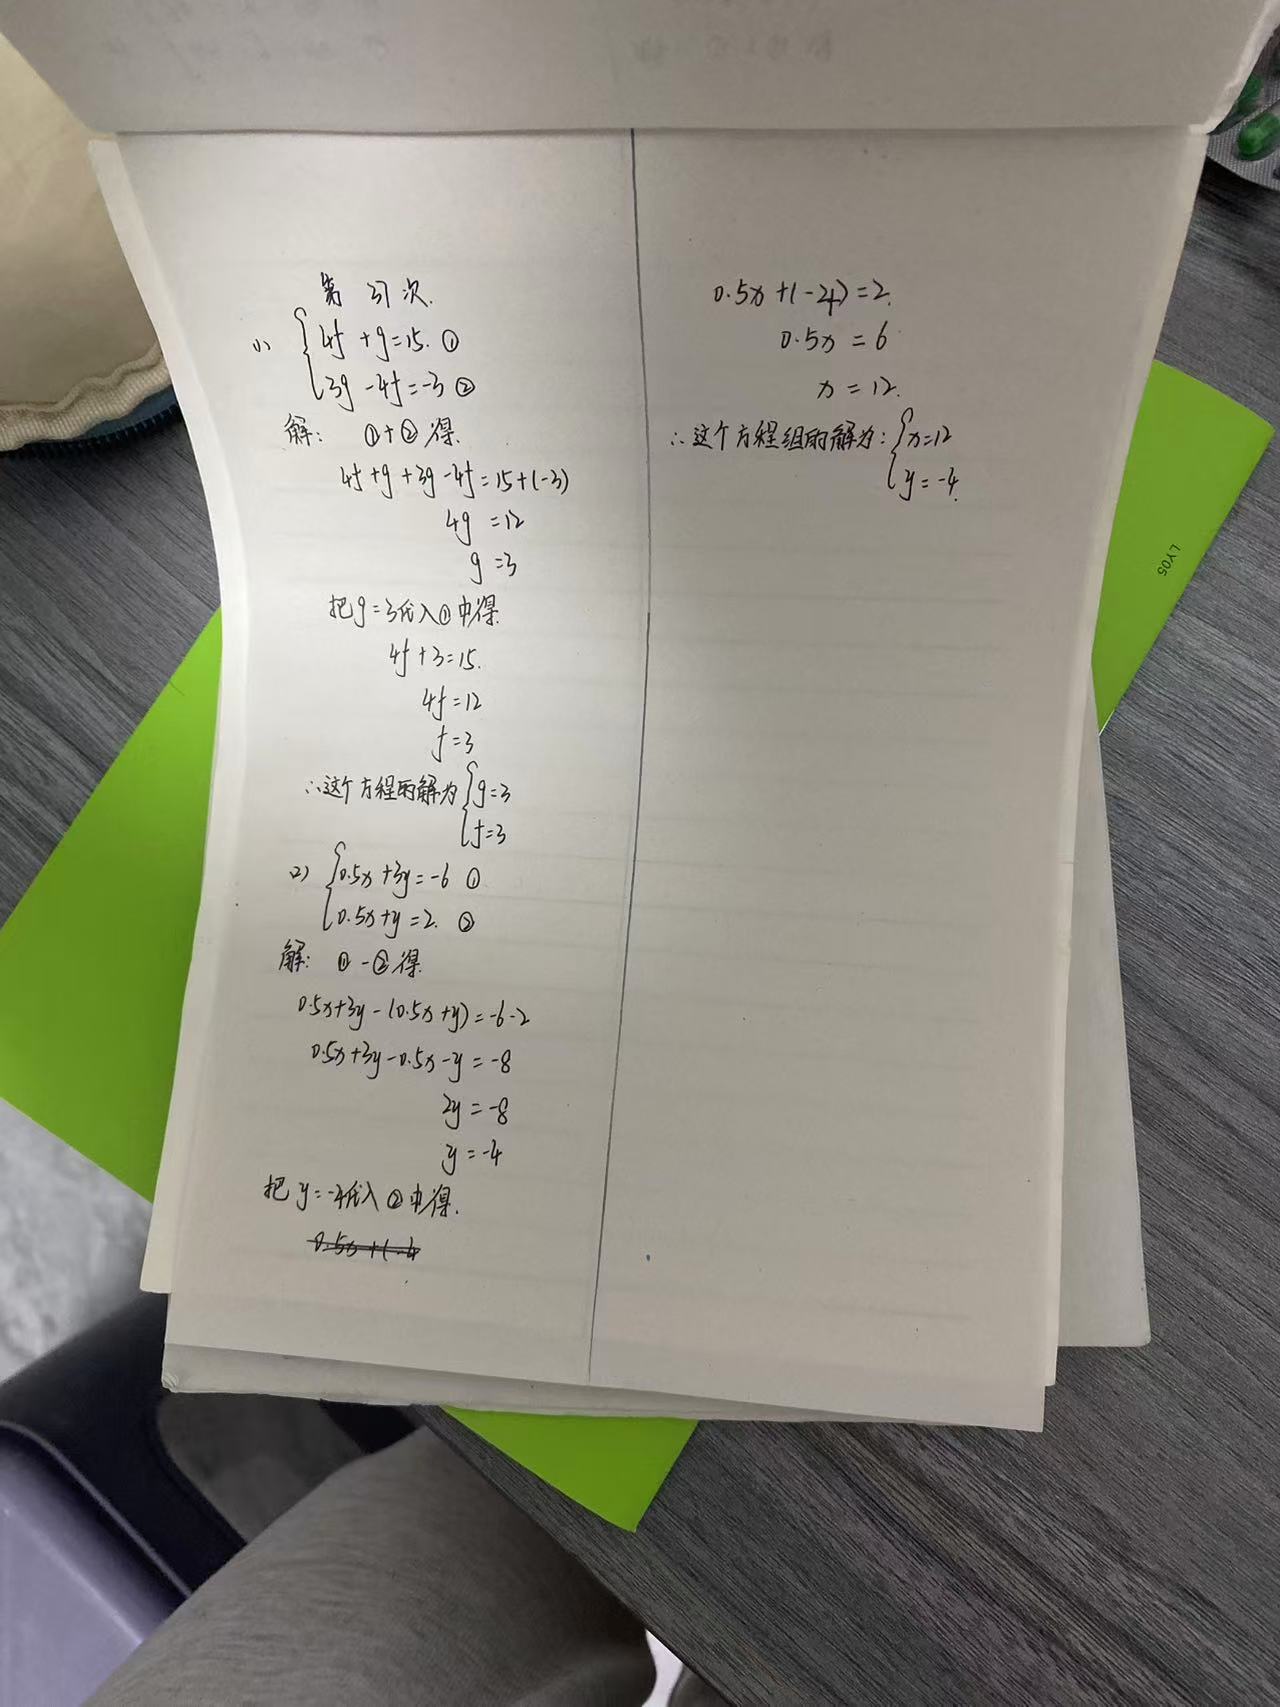 第37次.
(1) { 4f + g = 15. ①
3g - 4f = -3 ②
解: ①+②得.
4f + g + 3g - 4f = 15 + (-3)
4g = 12
g = 3
把g=3代入①中得.
4f + 3 = 15.
4f = 12
f = 3
∴这个方程的解为 { g = 3
f = 3
(2) { 0.5x + 3y = -6 ①
0.5x + y = 2. ②
解: ①-②得.
0.5x + 3y - (0.5x + y) = -6 - 2
0.5x + 3y - 0.5x - y = -8
2y = -8
y = -4
把y=-4代入②中得.
0.5x + (-4
0.5x + (-4) = 2.
0.5x = 6
x = 12.
∴这个方程组的解为: { x = 12
y = -4.
LY05